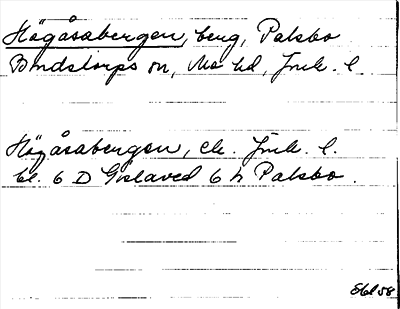 Högåsabergen, berg, Palsbo
Bondstorps sn, Mo hd, Jmk. l.
Högåsabergen, ek. Jmk. l.
bl. 6 D Gislaved 6 h Palsbo.
Ebl 58